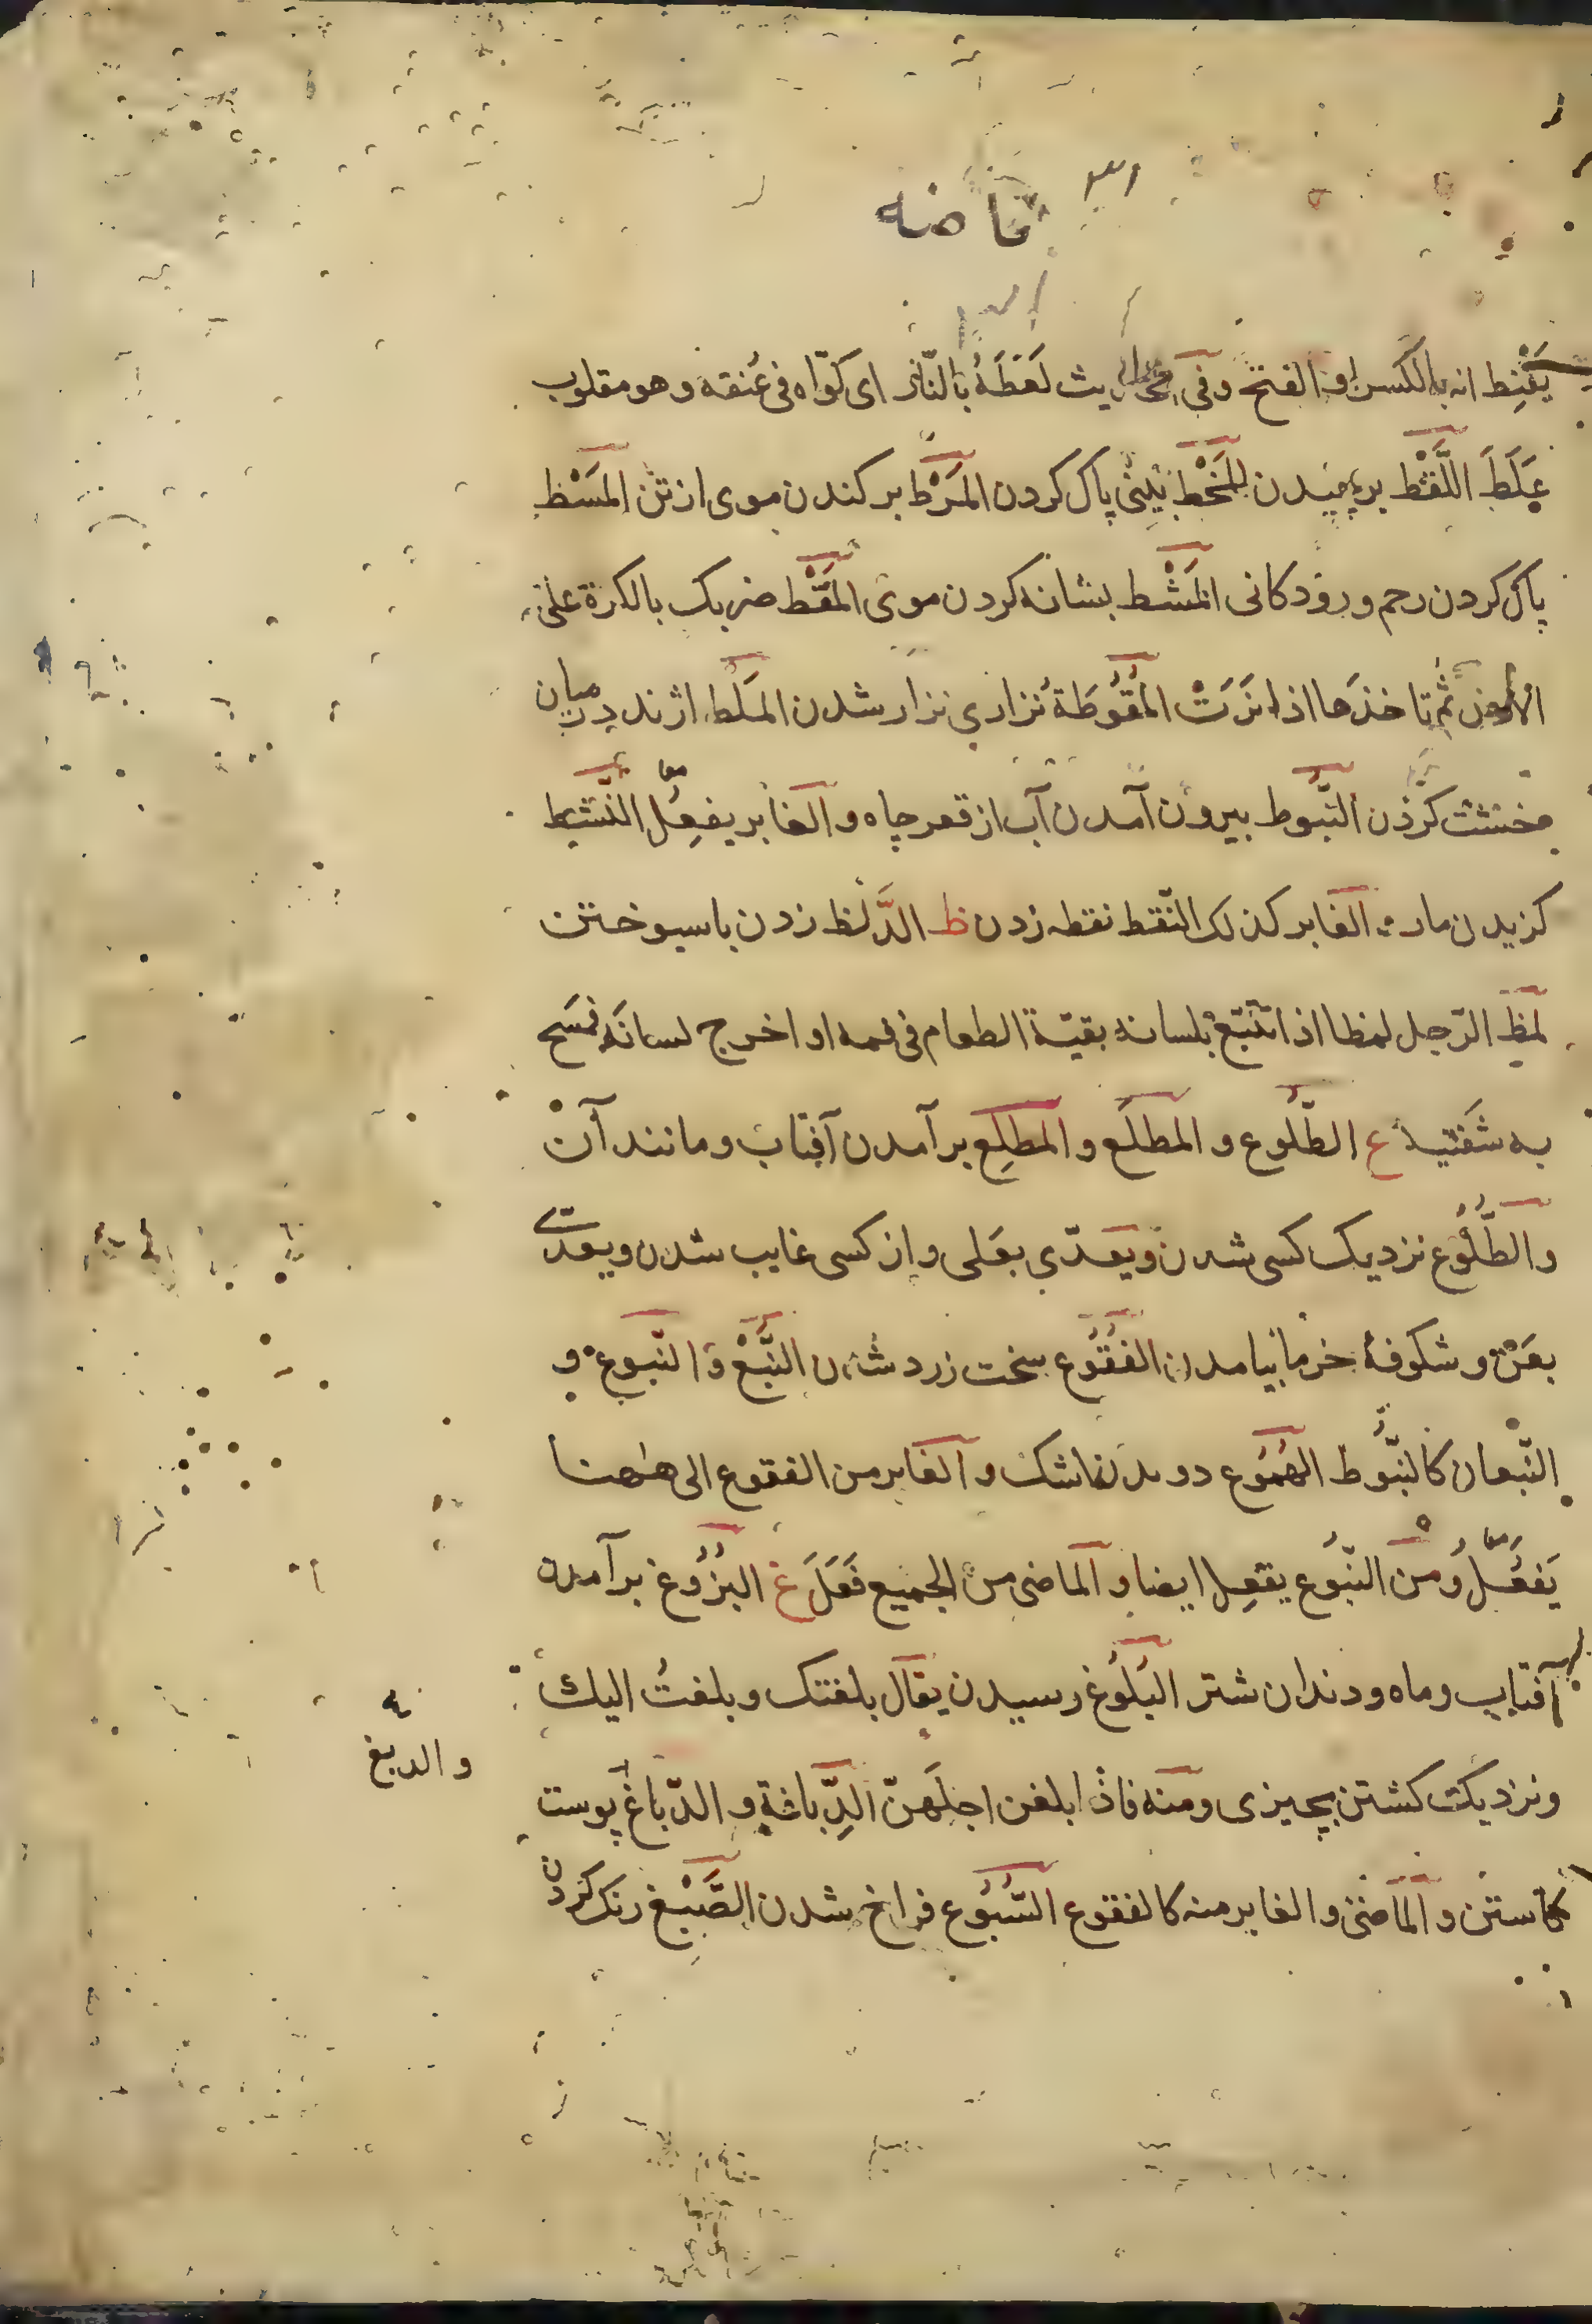 قاضه
يَقْنِط انه بالكسر او الفتح وفى الحديث لَعَطَهُ بالنّار اى كوّاه فى عُنقه وهو مقلوب
عَلَطَ اللَّقْط برچيدن المَخْط بينى پاك كردن المَرْط بركندن موى از تن المَسْط
پاك كردن رحم و رودكانى المَشْط بشانه كردن موى المَقْط ضربك بالكرة على
الارض ثم تاخذها اذا نَزَتْ المُقُوطَة نزارى نزار شدن المَلْط اژند در ميان
خشت كردن النُّبُوط بيرون آمدن آب از قعر چاه و الغابر يفعِل معا النَّشْط
كزيدن مار و الغابر كذلك النّقط نقطه زدن ظ الدَّلظ زدن باسپوختن
لمظ الرّجل لمظا اذا تتبّع بلسانه بقيّة الطعام فى فمه او اخرج لسانَه فمسَح
به شَفَتيه ع الطُّلُوع و المطلَع و المطلِع برآمدن آفتاب و مانند آن
و الطُّلُوع نزديك كسى شدن و يعدّى بعَلى و از كسى غايب شدن و يعدّى
بعَنْ و شكوفهٔ خرما بيامدن الفُقُوع سخت زرد شدن النَّبْع و النّبوع و
النّبعان كالنُّبُوط الهُمُوع دويدن اشك و الغابر من الفقوع الى هٰهنا
يَفعُل معا و من النّبُوع يفعِل ايضا و الماضى من الجميع فَعَلَ غ البُزُوغ برآمدن
آفتاب و ماه و دندان شتر البُلُوغ رسيدن يقال بلغتك و بلغتُ اليك
و نزديك كشتن بچيزى و منه فاذا بلغن اجلَهنّ الدِّباغة و الدّباغ پوست
و الدبغ
كاستن و الماضى و الغابر منه كالفقوع السُّبُوغ فراخ شدن الصَّبْغ رنك كردن